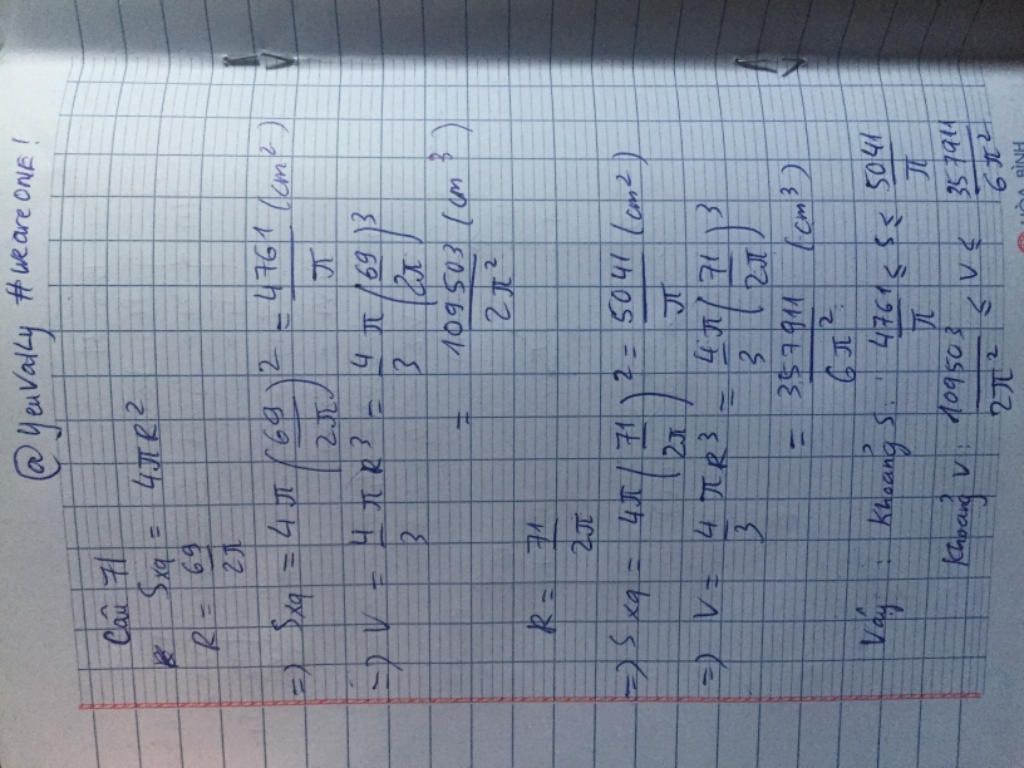 @YeuVatLy #weareONE!
Câu 71
Sxq = 4πR²
R = 69/2π
=) Sxq = 4π (69/2π)² = 4761/π (cm²)
=) V = 4/3 πR³ = 4/3 π (69/2π)³
= 109503/2π² (cm³)
R = 71/2π
=) Sxq = 4π (71/2π)² = 5041/π (cm²)
=) V = 4/3 πR³ = 4/3 π (71/2π)³
= 357911/6π² (cm³)
Vậy : Khoảng S : 4761/π ≤ S ≤ 5041/π
Khoảng V : 109503/2π² ≤ V ≤ 357911/6π²
HÒA BÌNH